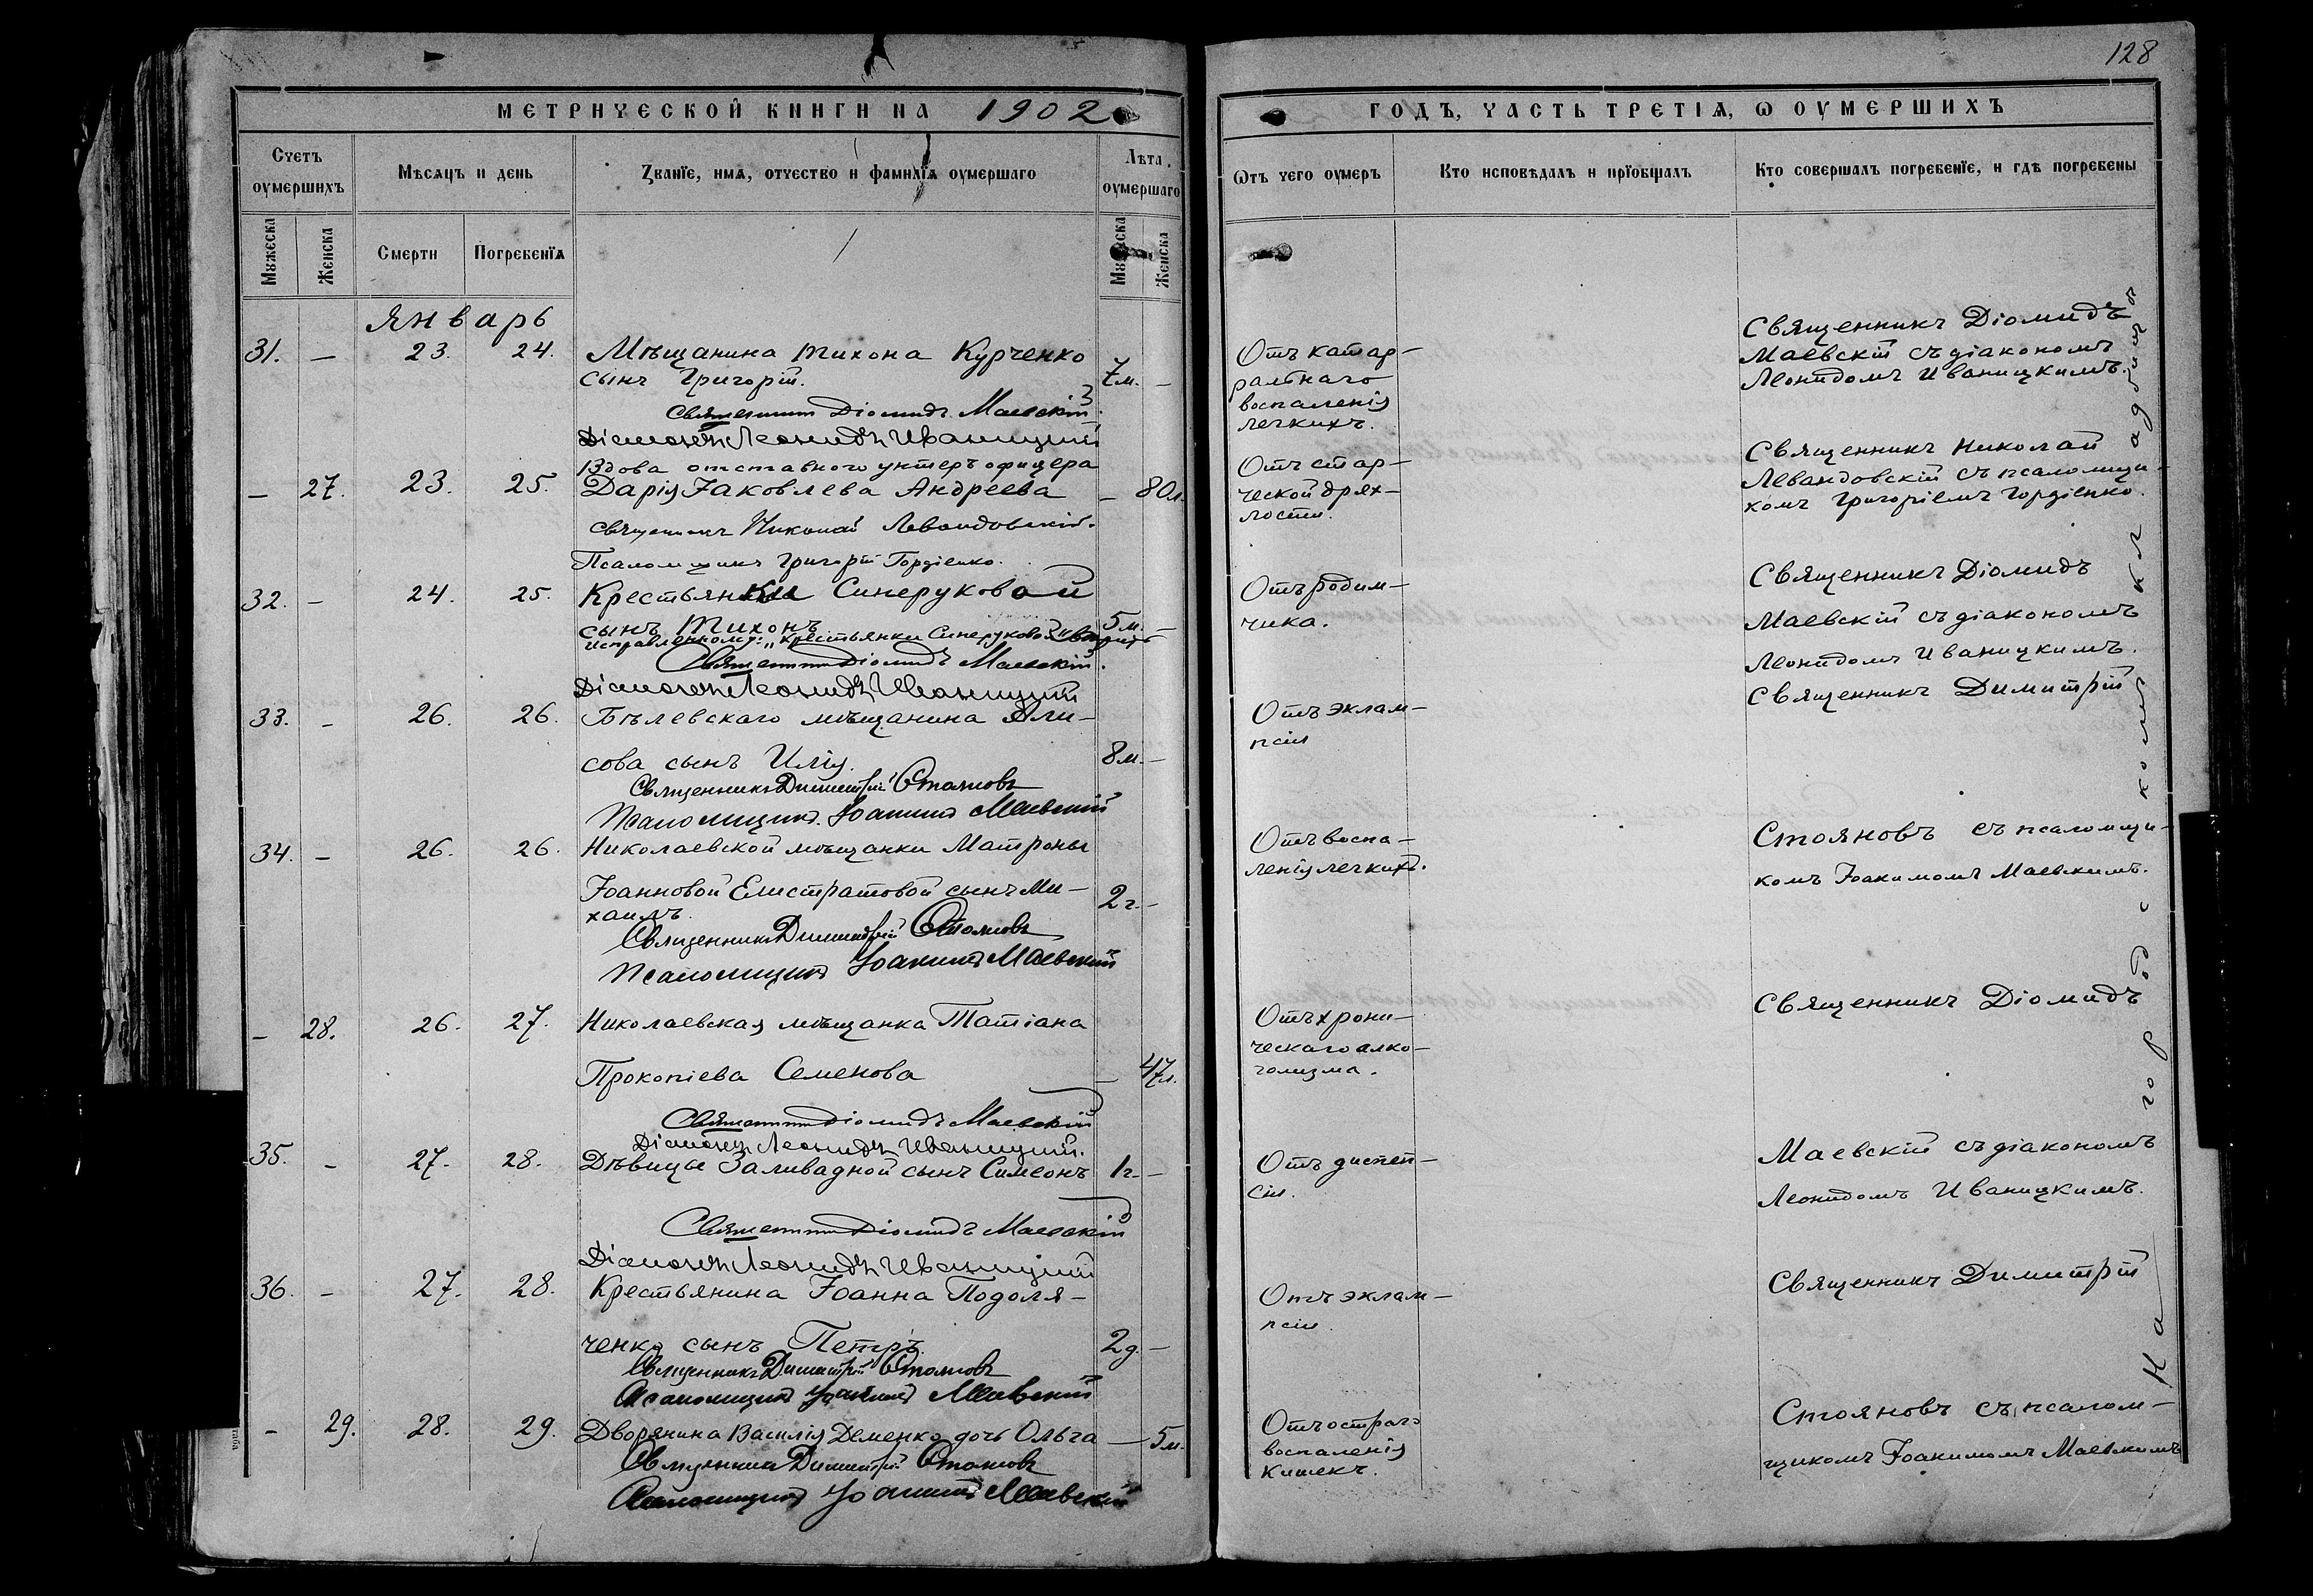 128
МЕТРИЧЕСКОЙ КНИГИ НА 1902
ГОДЪ, ЧАСТЬ ТРЕТІѦ, Ѡ ОУМЕРШИХЪ
Счетъ оумершихъ
Мѣсѧцъ и день
Званїе, имѧ, отчество и фамилїѧ оумершаго
Лѣта оумершаго
Ѿтъ чего оумеръ
Кто исповѣдалъ и прїобщалъ
Кто совершалъ погребенїе, и гдѣ погребены
Мужеска
Женска
Смерти
Погребенїѧ
Мужеска
Женска
Январь
31. — 23. 24. Мѣщанина Тихона Курченко
сынъ Григорій. 7 м. —
Священникъ Діомидъ Маевскій
Діаконъ Леонидъ Иваницкій
Отъ катар–
ральнаго
воспаленія
легкихъ.
Священникъ Діомидъ
Маевскій съ діакономъ
Леонидомъ Иваницкимъ.
Вдова отставного унтеръ офицера
— 27. 23. 25. Дарія Іаковлева Андреева — 80 л.
Священникъ Николай Левандовскій.
Псаломщикъ Григорій Гордіенко.
Отъ стар–
ческой дрях–
лости.
Священникъ Николай
Левандовскій съ псаломщи–
комъ Григоріемъ Гордіенко.
32. — 24. 25. Крестьянки Синеруковой
сынъ Тихонъ 5 м. —
Исправленному: „Крестьянки Синеруковой" вѣрить
Священникъ Діомидъ Маевскій.
Діаконъ Леонидъ Иваницкій
Отъ родим–
чика.
Священникъ Діомидъ
Маевскій съ діакономъ
Леонидомъ Иваницкимъ.
33. — 26. 26. Бѣлевскаго мѣщанина Али–
сова сынъ Илія. 8 м. —
Священникъ Димитрій Стояновъ
Псаломщикъ Іоакимъ Маевскій
Отъ эклам–
псіи
Священникъ Димитрій
34. — 26. 26. Николаевской мѣщанки Матроны
Іоанновой Елистратовой сынъ Ми–
хаилъ. 2 г. —
Священникъ Димитрій Стояновъ
Псаломщикъ Іоакимъ Маевскій
Отъ воспа–
ленія легкихъ.
Стояновъ съ псаломщи–
комъ Іоакимомъ Маевскимъ.
— 28. 26. 27. Николаевская мѣщанка Татіана
Прокопіева Семенова — 47 л.
Священникъ Діомидъ Маевскій
Діаконъ Леонидъ Иваницкій.
Отъ хрони–
ческаго алко–
голизма.
Священникъ Діомидъ
35. — 27. 28. Дѣвицы Заливадной сынъ Симеонъ 1 г. —
Священникъ Діомидъ Маевскій
Діаконъ Леонидъ Иваницкій
Отъ диспеп–
сіи.
Маевскій съ діакономъ
Леонидомъ Иваницкимъ.
36. — 27. 28. Крестьянина Іоанна Подоля–
ченко сынъ Петръ. 2 д. —
Священникъ Димитрій Стояновъ
Псаломщикъ Іоакимъ Маевскій
Отъ эклам–
псіи.
Священникъ Димитрій
— 29. 28. 29. Дворянина Василія Деменко дочь Ольга — 5 м.
Священникъ Димитрій Стояновъ
Псаломщикъ Іоакимъ Маевскій
Отъ остраго
воспаленія
кишекъ.
Стояновъ съ псалом–
щикомъ Іоакимомъ Маевскимъ
На городскомъ кладбищѣ